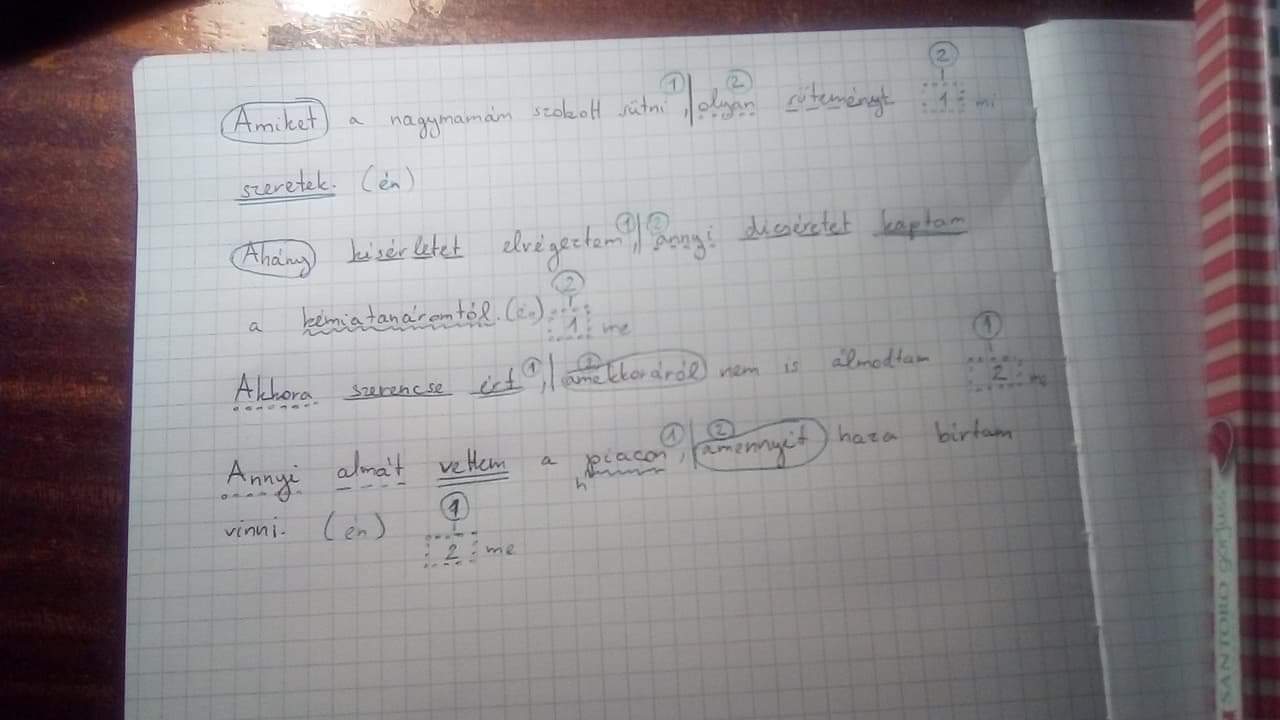 ②
Amiket a nagymamám szokott sütni ①, | ② olyan süteményt 1 mi
szeretek. (én)
Ahány kisérletet elvégeztem ①, | ② annyi dicséretet kaptam
②
a kémiatanáromtól. (én) 1 me
①
Akkora szerencse ért ①, | ② amekkoráról nem is álmodtam 2 me
Annyi almát vettem a piacon ①, | ② amennyit haza birtam
h
①
vinni. (én) 2 me
SANTORO gorjuss